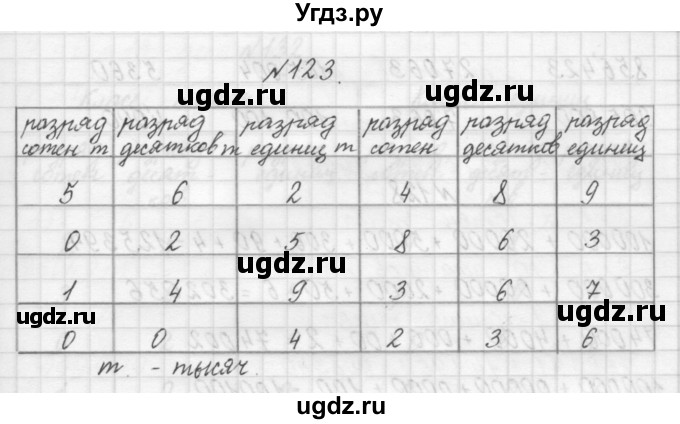 Угдз.ру
№123.
ugdz.ru ugdz.ru
разряд разряд разряд разряд разряд разряд
сотен т десятков т единиц т сотен десятков единиц
ugdz.ru ugdz.ru
5 6 2 4 8 9
0 2 5 8 6 3
ugdz.ru
1 4 9 3 6 7
ugdz.ru ugdz.ru
0 0 4 2 3 6
т. - тысяч.
ugdz.ru ugdz.ru
ugdz.ru